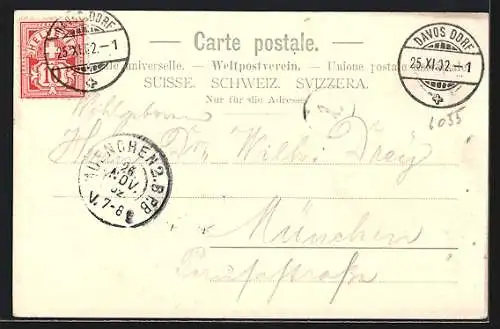 DAVOS DORF
25.XI.02.-1
HELVETIA
10
Carte postale.
DAVOS DORF
25.XI.02.-1
universelle. — Weltpostverein. — Unione postale
SUISSE. SCHWEIZ. SVIZZERA.
Nur für die Adresse.
6055
Wohlgeboren
Dr. Wilh.
MUENCHEN 2.B.P.B
26
NOV.
02
V. 7-8
München